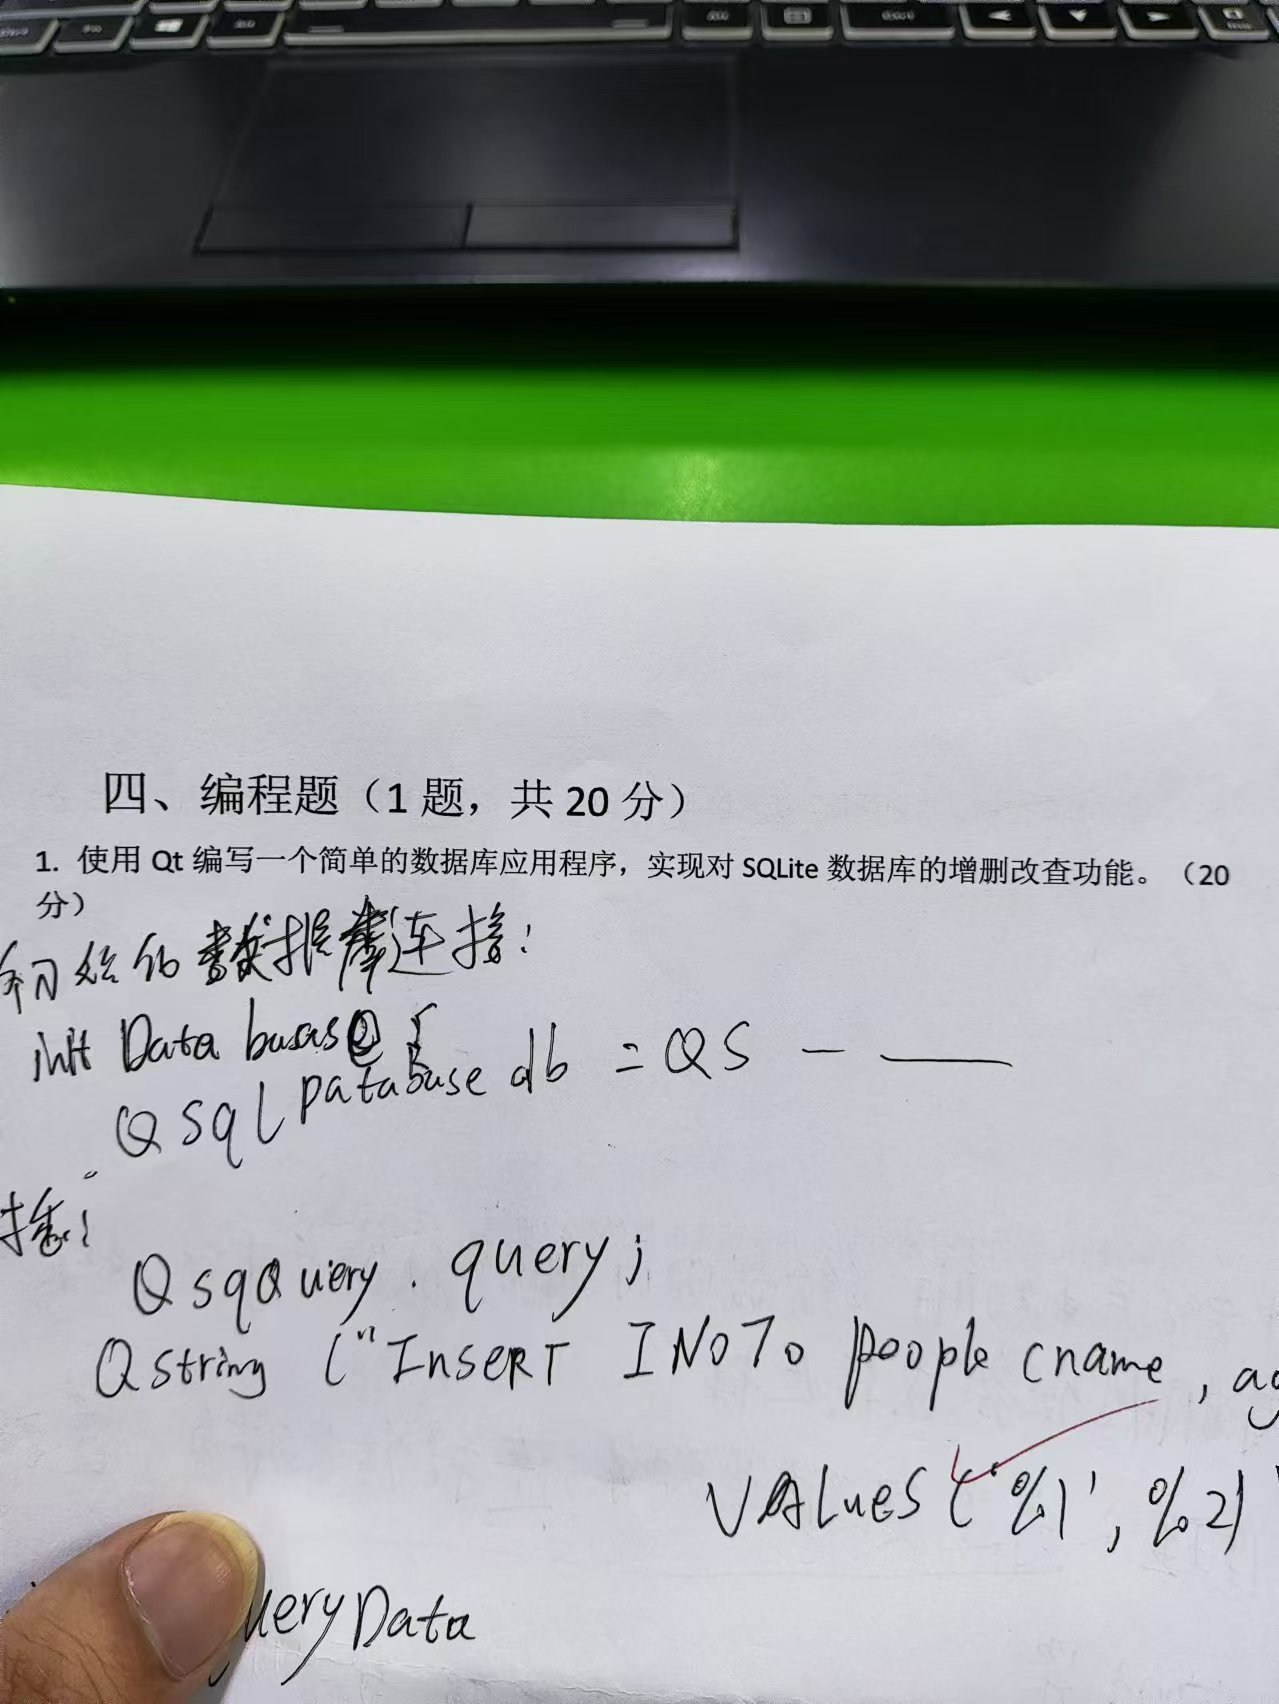 四、编程题（1 题，共 20 分）
1. 使用 Qt 编写一个简单的数据库应用程序，实现对 SQLite 数据库的增删改查功能。（20
分）
初始化数据库连接：
init Database {
QSqlDatabase db = QS — ——
插：
QsqQuery . query;
Qstring ("InseRT INoTo people (name, ag
VALueS ('%1', %2)"
ueryData